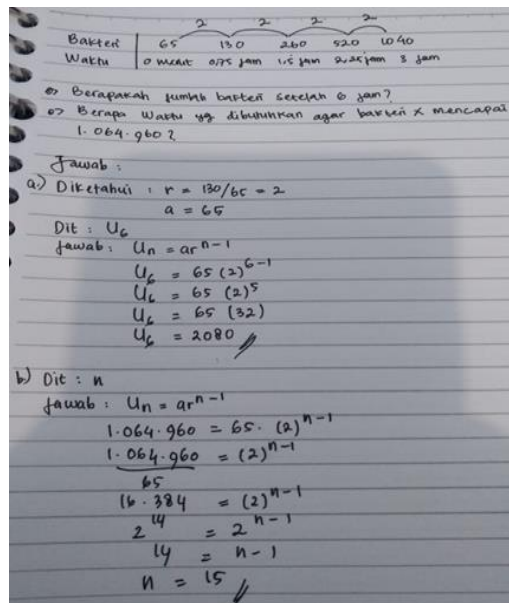 2 2 2 2
Bakteri 65 130 260 520 1040
Waktu 0 menit 0,75 jam 1,5 jam 2,25 jam 3 jam
a) Berapakah jumlah bakteri setelah 6 jam?
b) Berapa waktu yg dibutuhkan agar bakteri x mencapai
1.064.960?
Jawab :
a.) Diketahui : r = 130/65 = 2
a = 65
Dit : U6
Jawab : Un = ar^n-1
U6 = 65 (2)^6-1
U6 = 65 (2)^5
U6 = 65 (32)
U6 = 2080 //
b) Dit : n
Jawab : Un = ar^n-1
1.064.960 = 65. (2)^n-1
1.064.960 = (2)^n-1
65
16.384 = (2)^n-1
2^14 = 2^n-1
14 = n-1
n = 15 //